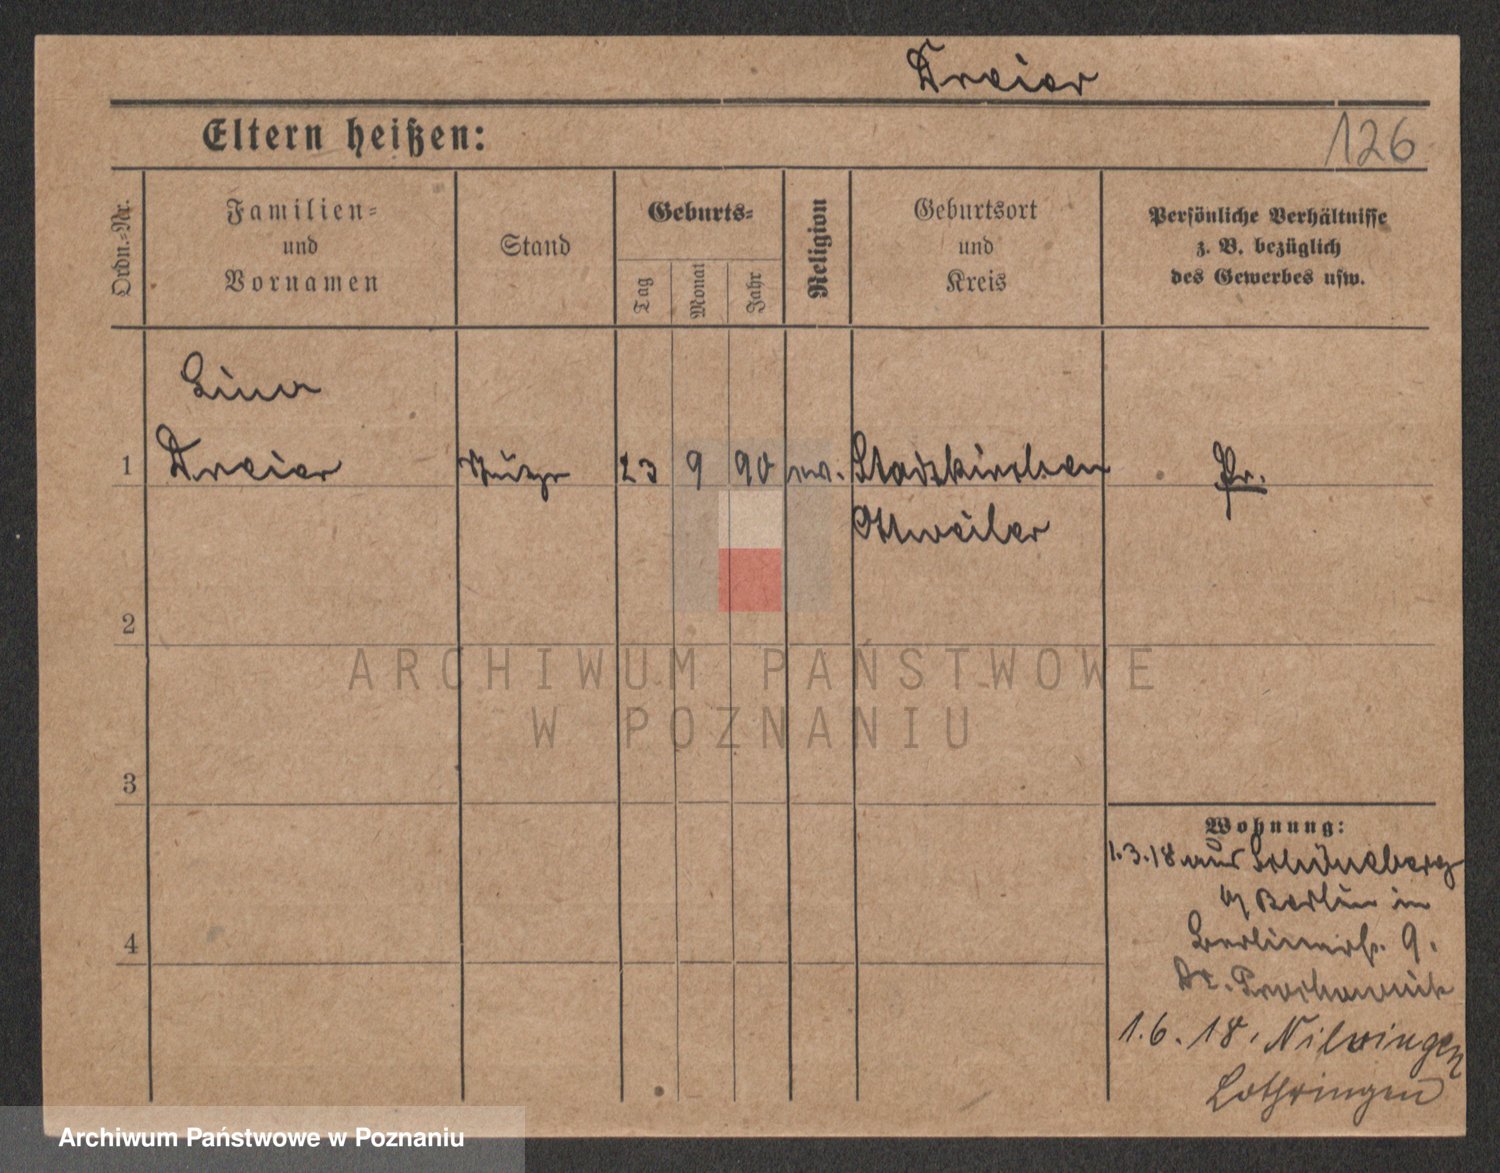 Dreier
Eltern heißen:
126
Ordn.-Nr.
Familien-
und
Vornamen
Stand
Geburts-
Tag
Monat
Jahr
Religion
Geburtsort
und
Kreis
Persönliche Verhältnisse
z. B. bezüglich
des Gewerbes usw.
Lina
1 Dreier Stütze 23 9 90 ev. Pr.
Ottweiler
2
3
4
Wohnung:
1.3.18 aus Schöneberg
b/ Berlin in
Berlinerstr. 9.
Dr.
1.6.18. Nilvingen
Lothringen
ARCHIWUM PAŃSTWOWE
W POZNANIU
Archiwum Państwowe w Poznaniu